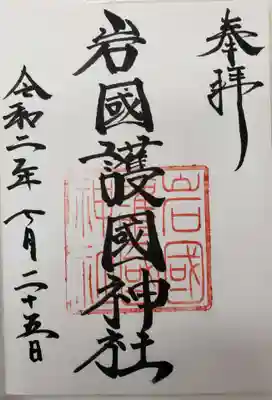 奉拝
岩國護國神社
令和二年七月二十五日
岩國
護國
神社